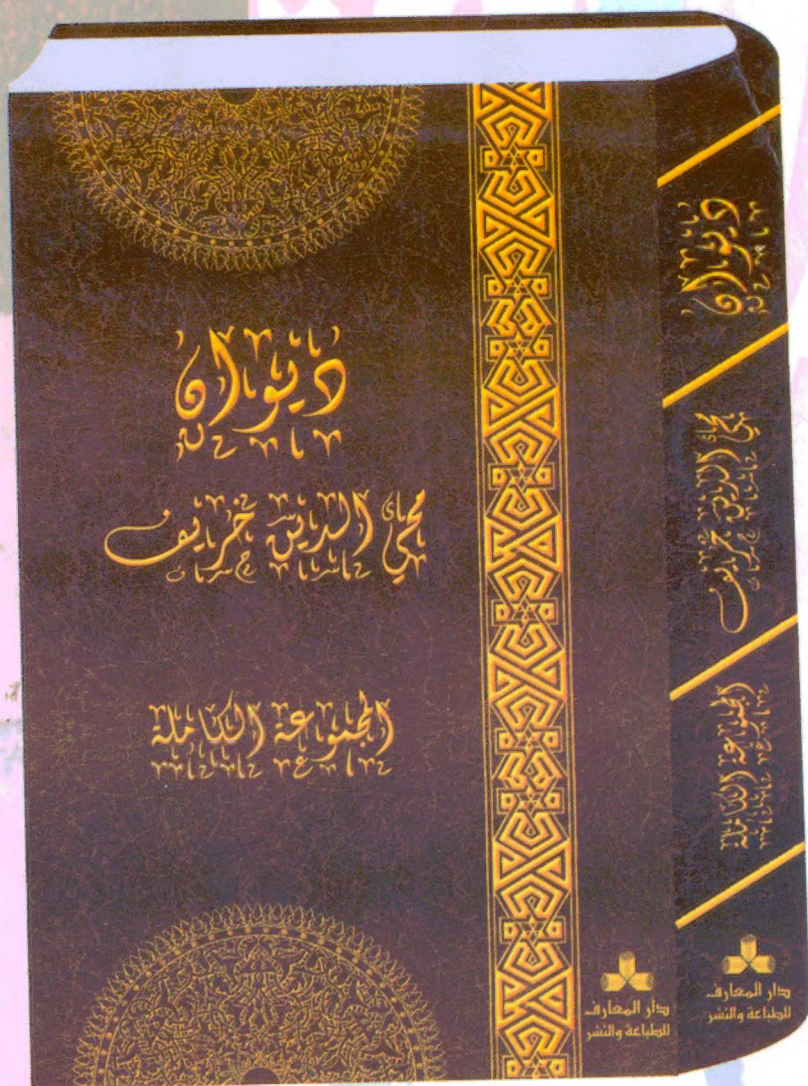 ديوان
محي الدين خريف
المجموعة الكاملة
دار المعارف
للطباعة والنشر
ديوان
محي الدين خريف
المجموعة الكاملة
دار المعارف
للطباعة والنشر